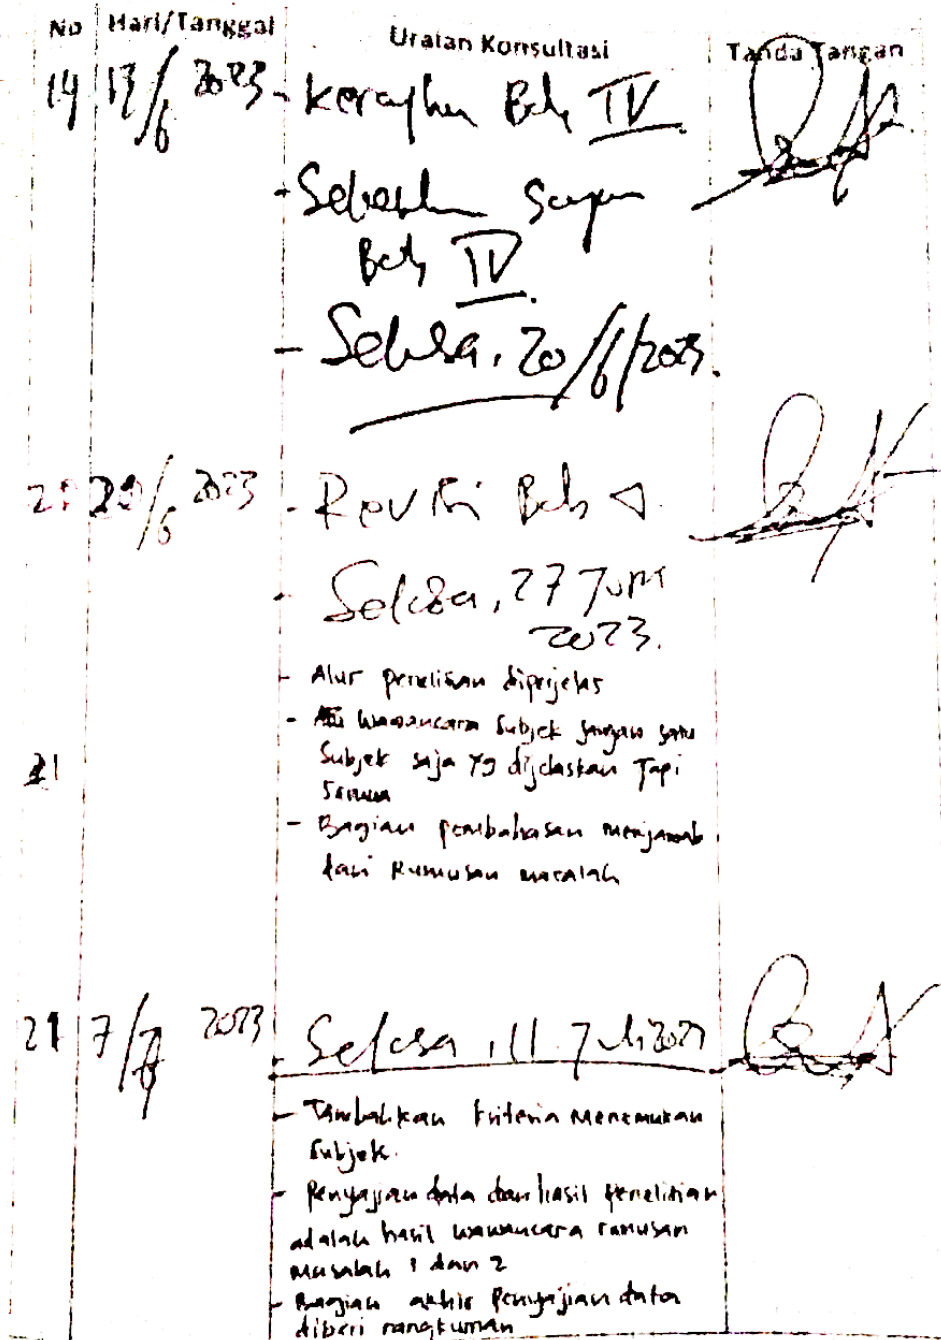 No Hari/Tanggal Uraian Konsultasi Tanda Tangan
19 13/6 2023 - Kerangka Bab IV
- Selesaikan
Bab IV
- Selasa, 20/6/2023.
20/6 2023 - Revisi Bab
- Selasa, 27 Juni
2023.
- Alur penelitian diperjelas
- wawancara subjek jangan satu
21 Subjek saja yg dijelaskan Tapi
semua
- Bagian pembahasan menjawab
dari Rumusan masalah
21 7/7 2023 - Selasa, 11 Juli 2023
- Tambahkan kriteria Menemukan
Subjek.
- Penyajian data dan hasil Penelitian
adalah hasil wawancara rumusan
Masalah 1 dan 2
- Bagian akhir Penyajian data
diberi rangkuman